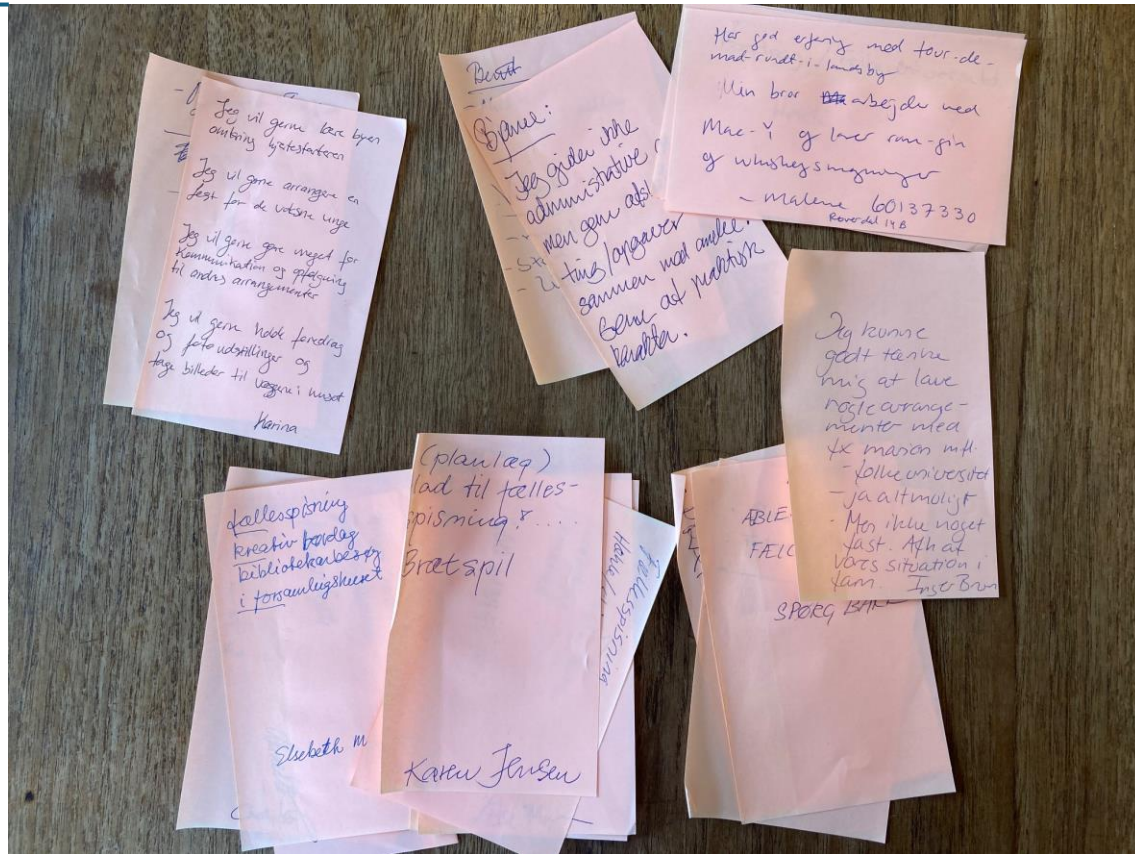 Jeg vil gerne lære byen
omkring hjertestarteren
Jeg vil gerne arrangere en
fest for de voksne unge
Jeg vil gerne gøre meget for
kommunikation og opfølgning
til andres arrangementer
Jeg vil gerne holde foredrag
og fotoudstillinger og
tage billeder til væggene i huset
Marina
Bjarne:
Jeg gider ikke
administrative
men gerne
ting/opgaver
sammen med andre.
Gerne af praktisk
karakter.
Har god erfaring med tour-de-
mad-rundt-i-landsby
Min bror arbejder med
Mac-Y og laver rom-gin
og whiskeysmagninger
- Malene 60137330
14B
Jeg kunne
godt tænke
mig at lave
nogle arrange-
menter med
fx marion mfl.
- folkeuniversitet
- ja alt muligt
- Men ikke noget
fast. Afh af
vores situation i
fam. Inger Brun
fællesspisning
kreativ
bibliotekarbesøg
i forsamlingshuset
Elsebeth M
(planlæg)
lad til fælles-
spisning?.....
Brætspil
Karen Jensen
fællesspisning
ÆBLE
SPØRG